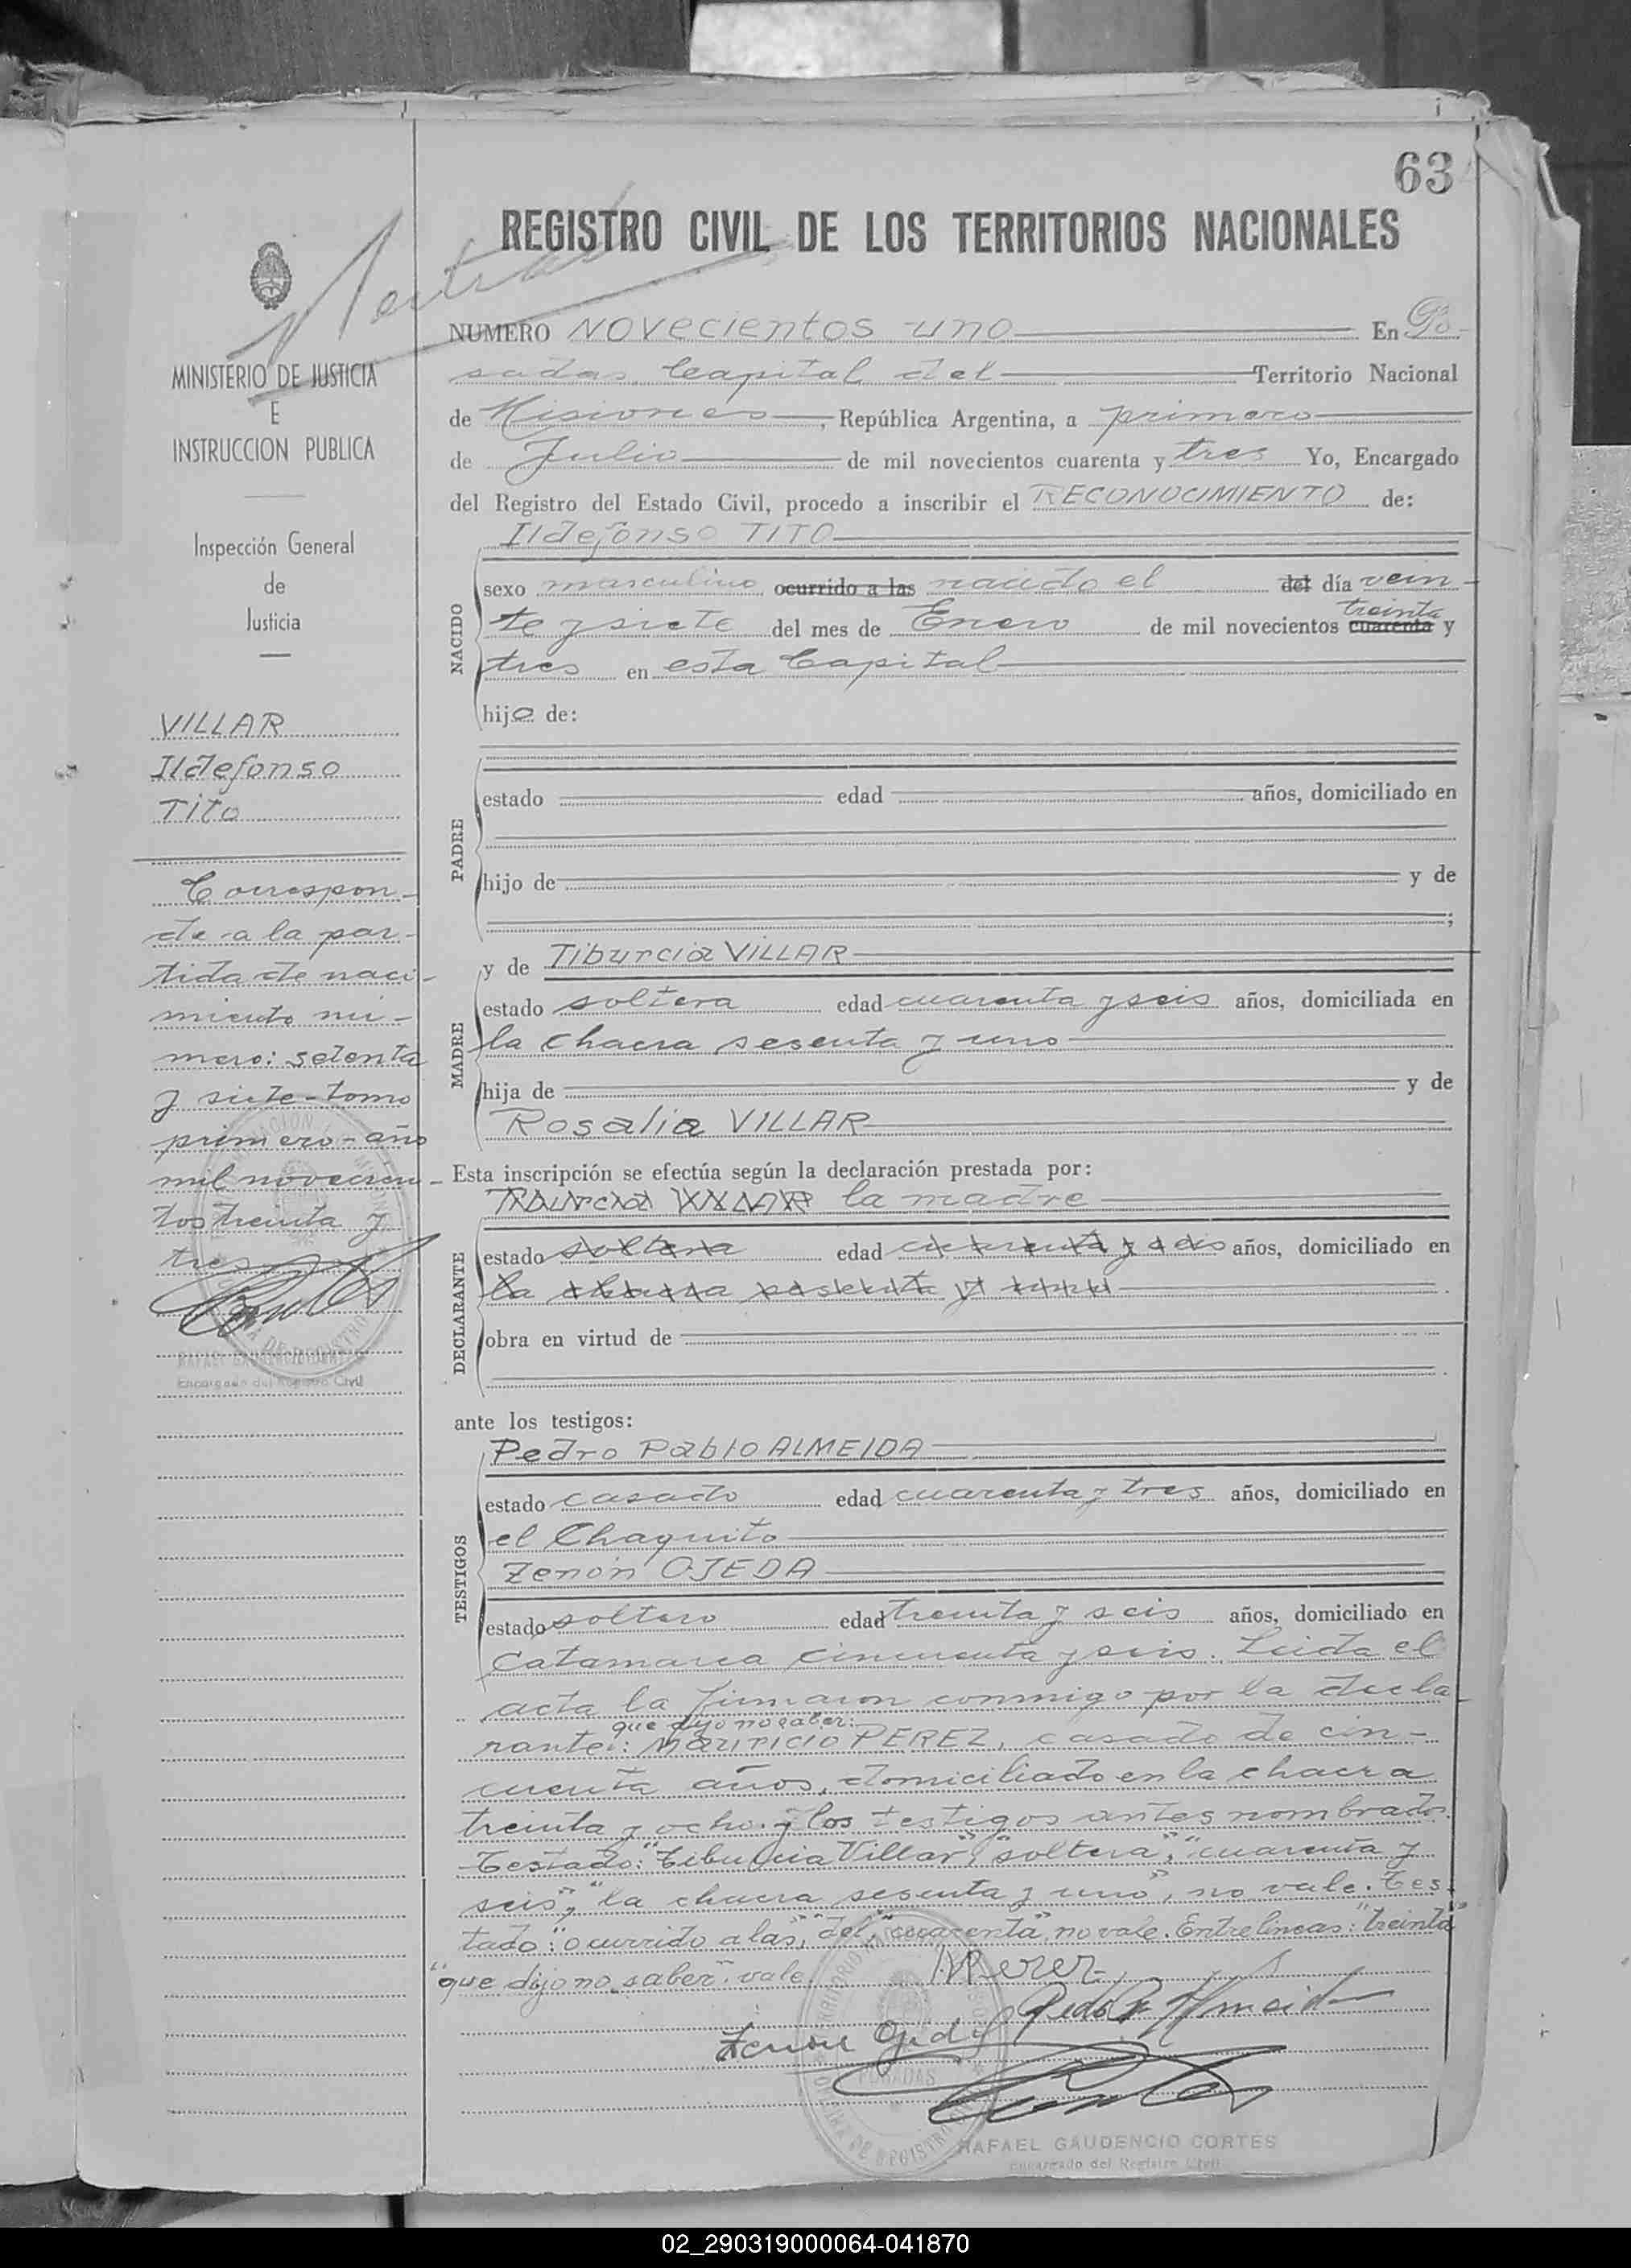 63
REGISTRO CIVIL DE LOS TERRITORIOS NACIONALES
MINISTERIO DE JUSTICIA
E
INSTRUCCION PUBLICA
Inspección General
de
Justicia
VILLAR
Ildefonso
Tito
Correspon-
de a la par-
tida de naci-
miento nú-
mero: setenta
y siete-tomo
primero-año
mil novecien-
tos treinta y
tres
RAFAEL GAUDENCIO CORTES
Encargado del Registro Civil
NUMERO NOVECIENTOS UNO En Po-
sadas Capital del Territorio Nacional
de Misiones, República Argentina, a primero
de Julio de mil novecientos cuarenta y tres Yo, Encargado
del Registro del Estado Civil, procedo a inscribir el RECONOCIMIENTO de:
Ildefonso TITO
NACIDO
sexo masculino ocurrido a las nacido el del día vein-
treinta
te y siete del mes de Enero de mil novecientos cuarenta y
tres en esta Capital
hijo de:
PADRE
estado edad años, domiciliado en
hijo de y de
;
MADRE
y de Tiburcia VILLAR
estado soltera edad cuarenta y seis años, domiciliada en
la chacra sesenta y uno
hija de y de
Rosalia VILLAR
Esta inscripción se efectúa según la declaración prestada por:
DECLARANTE
Tiburcia VILLAR la madre
estado soltera edad cuarenta y seis años, domiciliado en
la chacra sesenta y uno
obra en virtud de
ante los testigos:
TESTIGOS
Pedro Pablo ALMEIDA
estado casado edad cuarenta y tres años, domiciliado en
el Chaquito
Zenón OJEDA
estado soltero edad treinta y seis años, domiciliado en
Catamarca cincuenta y seis. Leida el
acta la firmaron conmigo por la decla-
que dijo no saber:
rante: Mauricio PEREZ, casado de cin-
cuenta años, domiciliado en la chacra
treinta y ocho y los testigos antes nombrados.
Testado: "Tiburcia Villar", "soltera", "cuarenta y
seis", "la chacra sesenta y uno", no vale. Tes-
tado: "ocurrido a las", "del", "cuarenta", no vale. Entrelineas: "treinta"
"que dijo no saber": vale.
MPerez
Pedro P. Almeida
Zenon Ojeda
POSADAS
RAFAEL GAUDENCIO CORTES
Encargado del Registro Civil
02_290319000064-041870